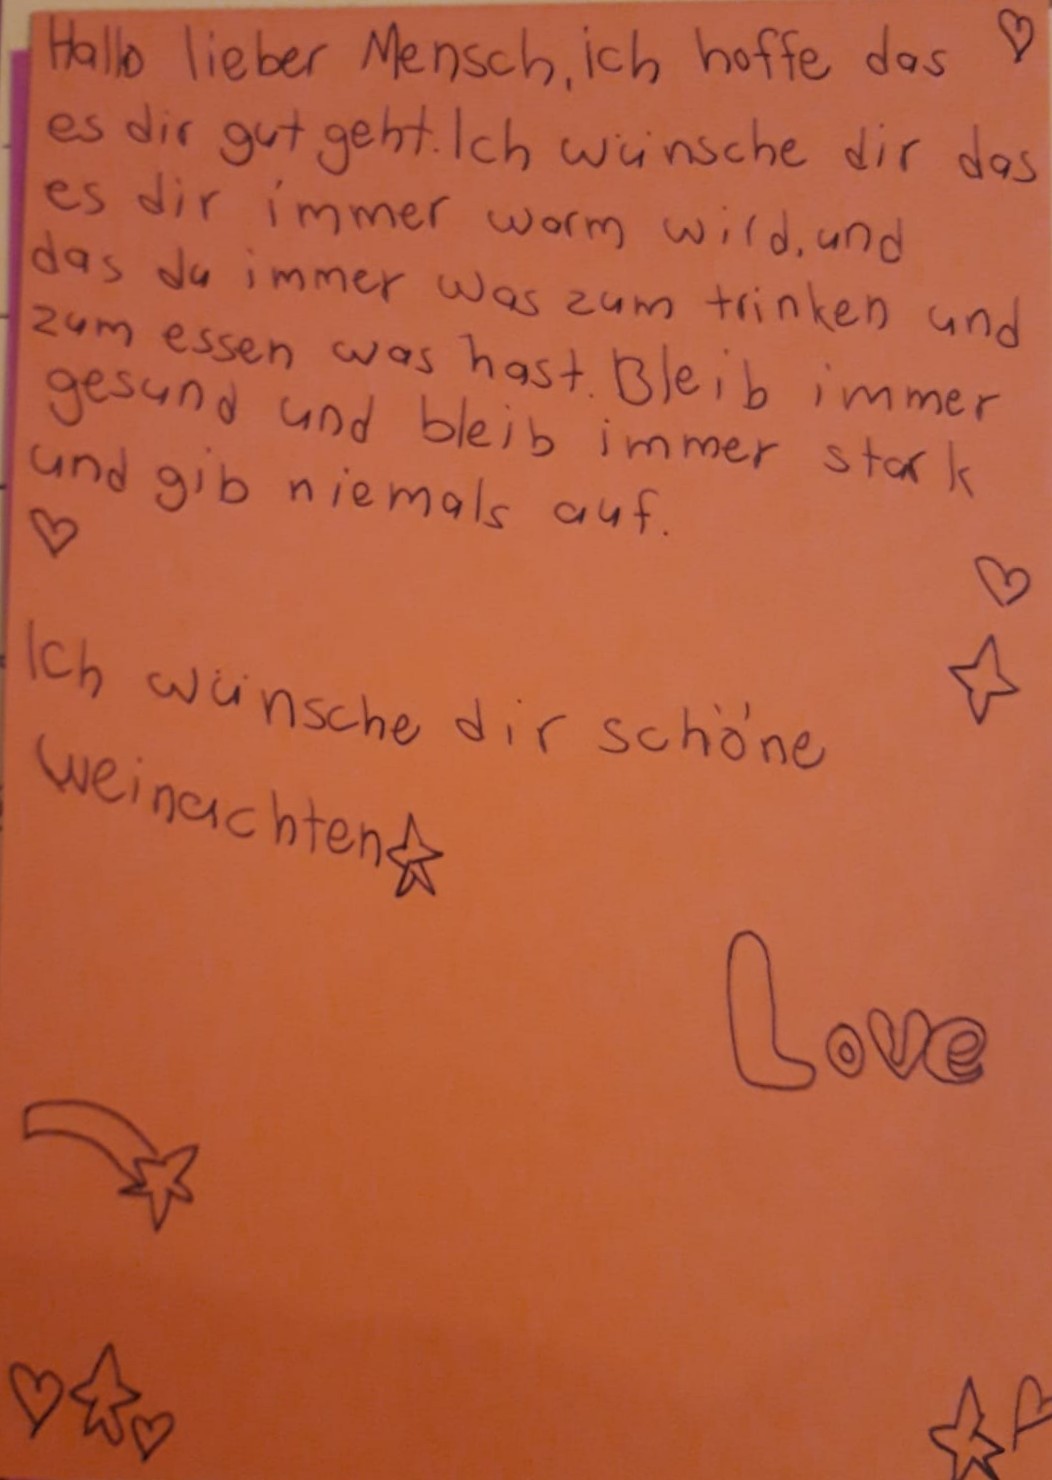 Hallo lieber Mensch, ich hoffe das
es dir gut geht. Ich wünsche dir das
es dir immer warm wird, und
das du immer was zum trinken und
zum essen was hast. Bleib immer
gesund und bleib immer stark
und gib niemals auf.
Ich wünsche dir schöne
Weinachten
Love